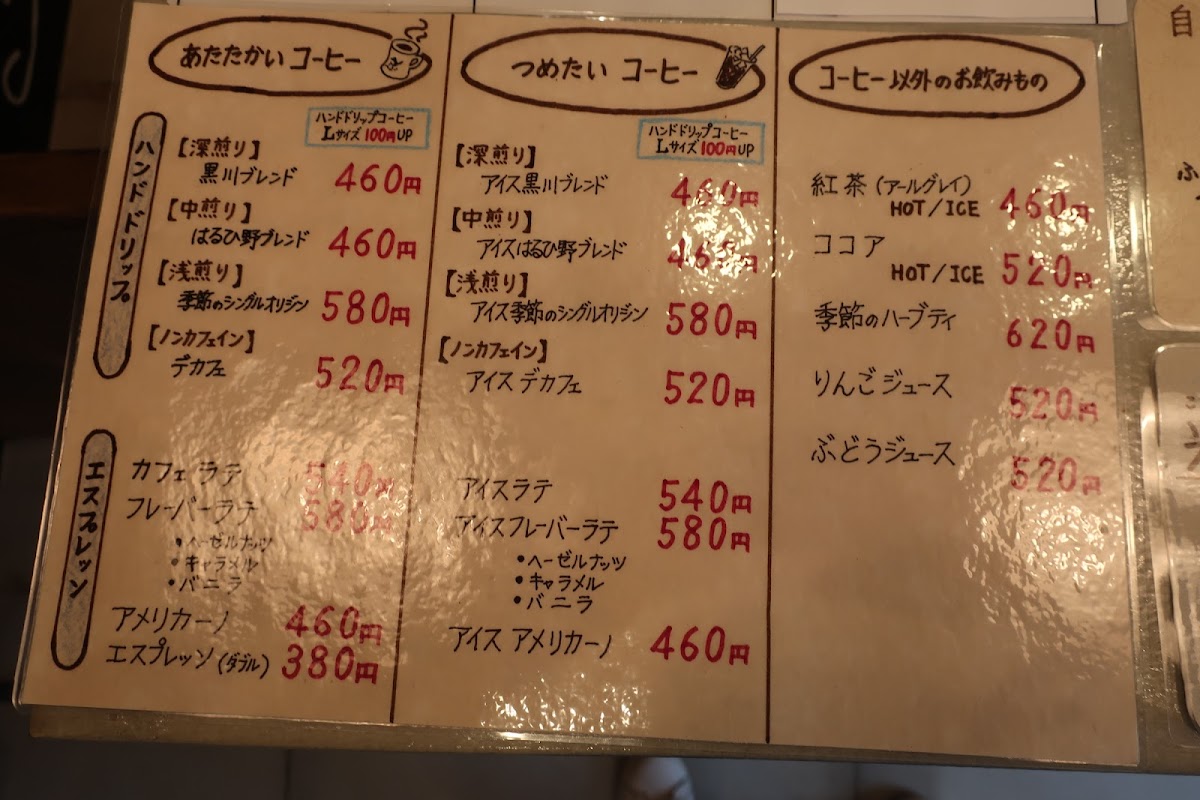 あたたかい コーヒー
ハンドドリップコーヒー
Lサイズ 100円UP
ハンドドリップ
【深煎り】
黒川ブレンド 460円
【中煎り】
はるひ野ブレンド 460円
【浅煎り】
季節のシングルオリジン 580円
【ノンカフェイン】
デカフェ 520円
エスプレッソ
カフェラテ 540円
フレーバーラテ 580円
•ヘーゼルナッツ
•キャラメル
•バニラ
アメリカーノ 460円
エスプレッソ(ダブル) 380円
つめたい コーヒー
ハンドドリップコーヒー
Lサイズ 100円UP
【深煎り】
アイス黒川ブレンド 460円
【中煎り】
アイスはるひ野ブレンド 460円
【浅煎り】
アイス季節のシングルオリジン 580円
【ノンカフェイン】
アイス デカフェ 520円
アイスラテ 540円
アイスフレーバーラテ 580円
•ヘーゼルナッツ
•キャラメル
•バニラ
アイス アメリカーノ 460円
コーヒー以外のお飲みもの
紅茶(アールグレイ)
HOT/ICE 460円
ココア
HOT/ICE 520円
季節のハーブティ 620円
りんごジュース 520円
ぶどうジュース 520円
自
ふ